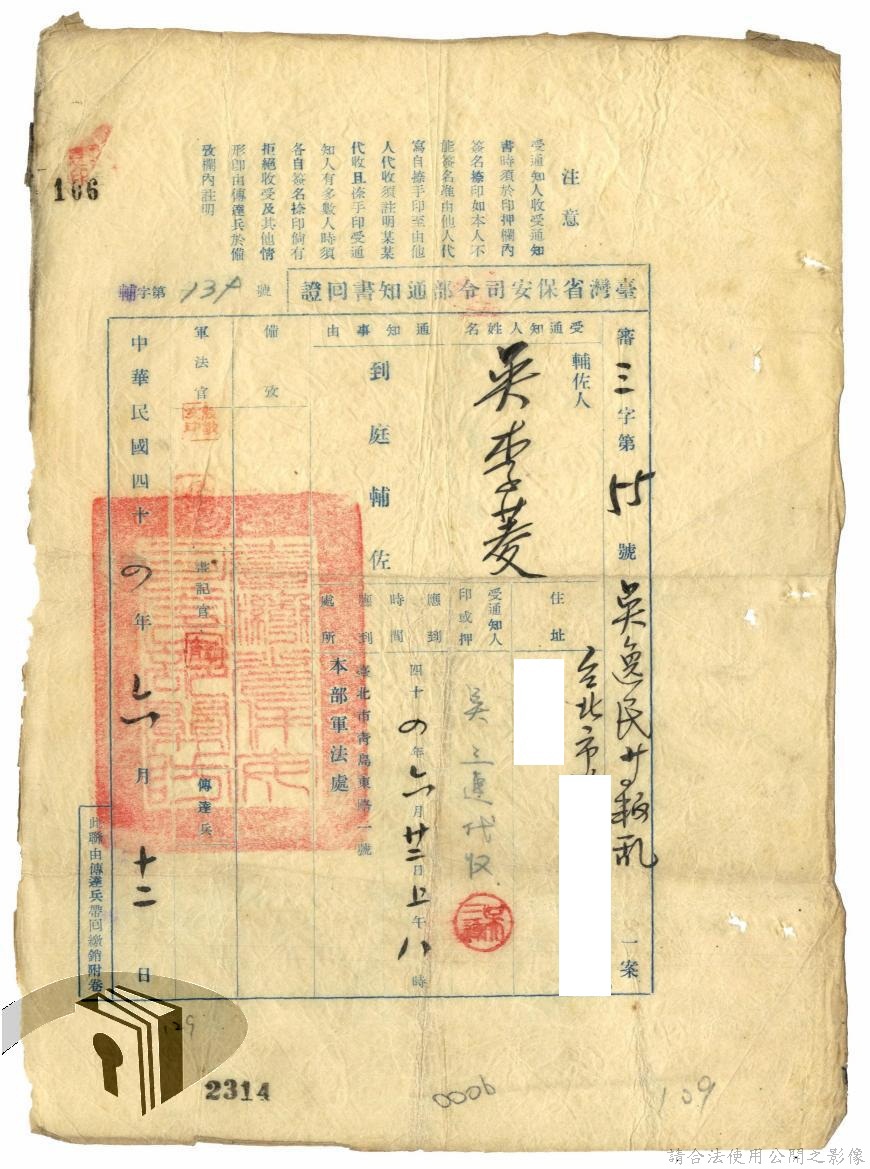 注意
受通知人收受通知
書時須於印押欄內
簽名捺印如本人不
能簽名准由他人代
寫自捺手印至由他
人代收須註明某某
代收且捺手印受通
知人有多數人時須
各自簽名捺印倘有
拒絕收受及其他情
形卽由傳達兵於備
攷欄內註明
106
臺灣省保安司令部通知書回證
輔字第134號
審三字第55號吳逸民等叛亂一案
受通知人姓名
輔佐人
吳李菱
住址
台北市
受通知人
印或押
吳三連代收
通知事由
到庭輔佐
應到
時間
四十四年六月廿二日上午八時
應到
處所
臺北市青島東路一號
本部軍法處
備攷
軍法官
書記官
傳達兵
中華民國四十四年六月十二日
此聯由傳達兵帶回繳銷附卷
129
2314
0006
109
請合法使用公開之影像